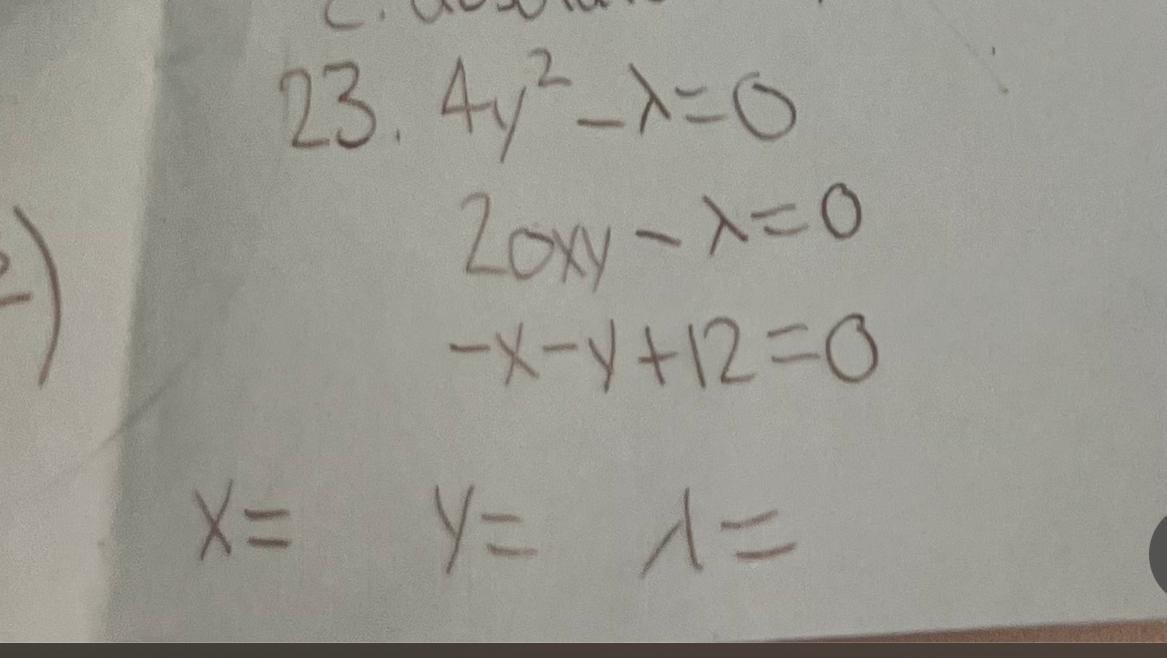 23. 4y² - λ = 0
20xy - λ = 0
-x - y + 12 = 0
x = y = λ =